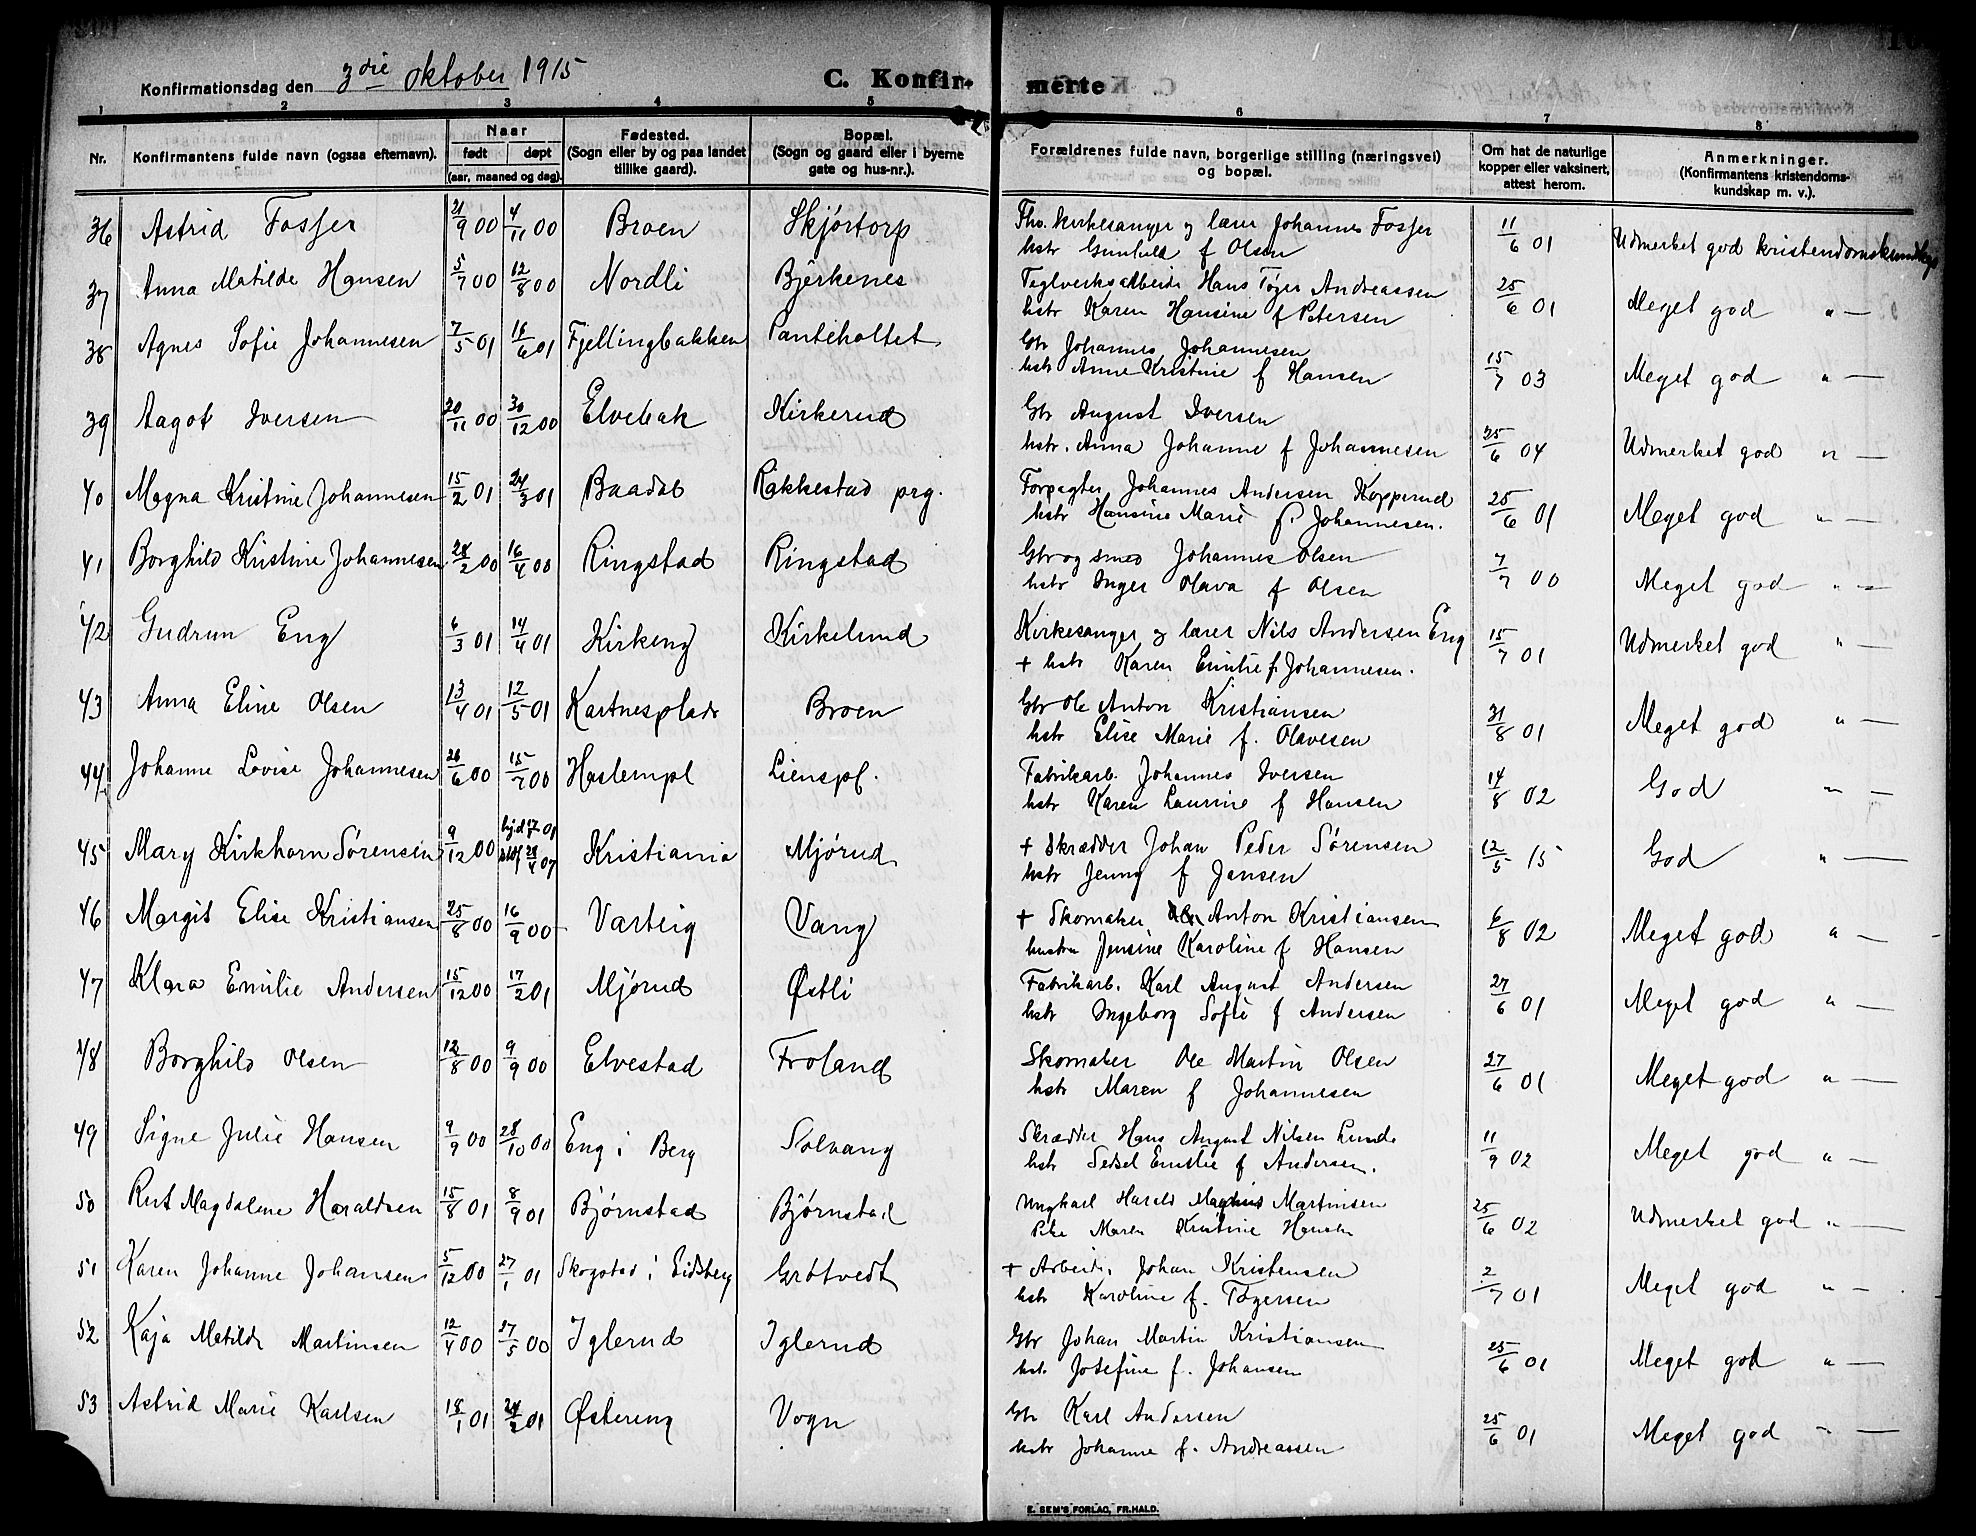 Konfirmationsdag den 3die oktober 1915
C. Konfirmerte
1 2 3 4 5 6 7 8
Nr. Konfirmantens fulde navn (ogsaa efternavn). Naar født døpt (aar, maaned og dag). Fødested. (Sogn eller by og paa landet tillike gaard). Bopæl. (Sogn og gaard eller i byerne gate og hus-nr.). Forældrenes fulde navn, borgerlige stilling (næringsvei) og bopæl. Om hat de naturlige kopper eller vaksinert, attest herom. Anmerkninger. (Konfirmantens kristendoms-kundskap m. v.).
36 Astrid Fosser 21/9 00 4/11 00 Broen Skjørtorp Fhv. kirkesanger og lærer Johannes Fosser 11/6 01 Udmerket god kristendomskundskap
hstr Gunhild f Olsen
37 Anna Matilde Hansen 5/7 00 12/8 00 Nordli Bjerkenes Teglverksarbeide Hans Tøger Andreassen 25/6 01 Meget god " —
hstr Karen Hansine f Petersen
38 Agnes Sofie Johannesen 7/5 01 16/6 01 Fjellingbakken Panteholtet Gbr Johannes Johannesen 15/7 03 Meget god " —
hstr Anne Kristine f Hansen
39 Aagot Iversen 20/11 00 30/12 00 Elvebak Kirkerud Gbr August Iversen 25/6 04 Udmerket god " —
hstr. Anna Johanne f Johannesen
40 Magna Kristine Johannesen 15/2 01 24/3 01 Baadst Rakkestad prg. Forpagter Johannes Andersen Kopperud 25/6 01 Meget god " —
hstr Hansine Marie f. Johannesen.
41 Borghild Kristine Johannesen 28/2 00 16/4 00 Ringstad Ringstad Gbr og smed Johannes Olsen 7/7 00 Meget god " —
hstr Inger Olava f Olsen
42 Gudrun Eng 6/3 01 14/4 01 Kirkeng Kirkelund Kirkesanger og lærer Nils Andersen Eng 15/7 01 Udmerket god " —
+ hstr Karen Emilie f Johannesen.
43 Anna Eline Olsen 13/4 01 12/5 01 Kartnesplads Broen Gbr Ole Anton Kristiansen 31/8 01 Meget god " —
hstr Elise Marie f. Olavesen
44 Johanne Lovise Johannesen 26/6 00 15/7 00 Haslempl Lienspl. Fabrikarb. Johannes Iversen 14/8 02 God " —
hstr Karen Laurine f Hansen
45 Mary Kirkhorn Sørensen 9/12 00 Kristiania Mjørud + Skrædder Johan Peder Sørensen 12/5 15 God " —
hstr Jenny f Jensen
46 Margit Elise Kristiansen 25/8 00 16/9 00 Varteig Vang + Skomaker Anton Kristiansen 6/8 02 Meget god " —
hustru Jensine Karoline f Hansen
47 Klara Emilie Andersen 15/12 00 17/2 01 Mjørud Østli Fabrikarb. Karl August Andersen 27/6 01 Meget god " —
hstr Ingeborg Sofie f Andersen
48 Borghild Olsen 12/8 00 9/9 00 Elvestad Froland Skomaker Ole Martin Olsen 27/6 01 Meget god " —
hstr Maren f Johannesen
49 Signe Julie Hansen 9/9 00 28/10 00 Eng i Berg Solvang Skrædder Hans August Nilsen Lunde 11/9 02 Meget god " —
hstr Sedsel Emilie f Andersen.
50 Rut Magdalene Haraldsen 15/8 01 8/9 01 Bjørnstad Bjørnstad Ungkarl Harald Magnus Martinsen 25/6 02 Udmerket god " —
Pike Maren Kristine Hansen
51 Karen Johanne Johansen 5/12 00 27/1 01 Skogstad i Eidsberg Grøtvedt + Arbeid. Johan Kristensen 2/7 01 Meget god " —
hstr Karoline f. Tøgersen
52 Kaja Matilde Martinsen 12/4 00 27/5 00 Iglerud Iglerud Gbr Johan Martin Kristiansen 25/6 01 Meget god " —
hst. Josefine f. Johansen
53 Astrid Marie Karlsen 18/1 01 24/2 01 Østereng Vogn Gbr Karl Andersen 25/6 01 Meget god " —
hstr Johanne f. Andreassen
E. SEM'S FORLAG, FR.HALD.